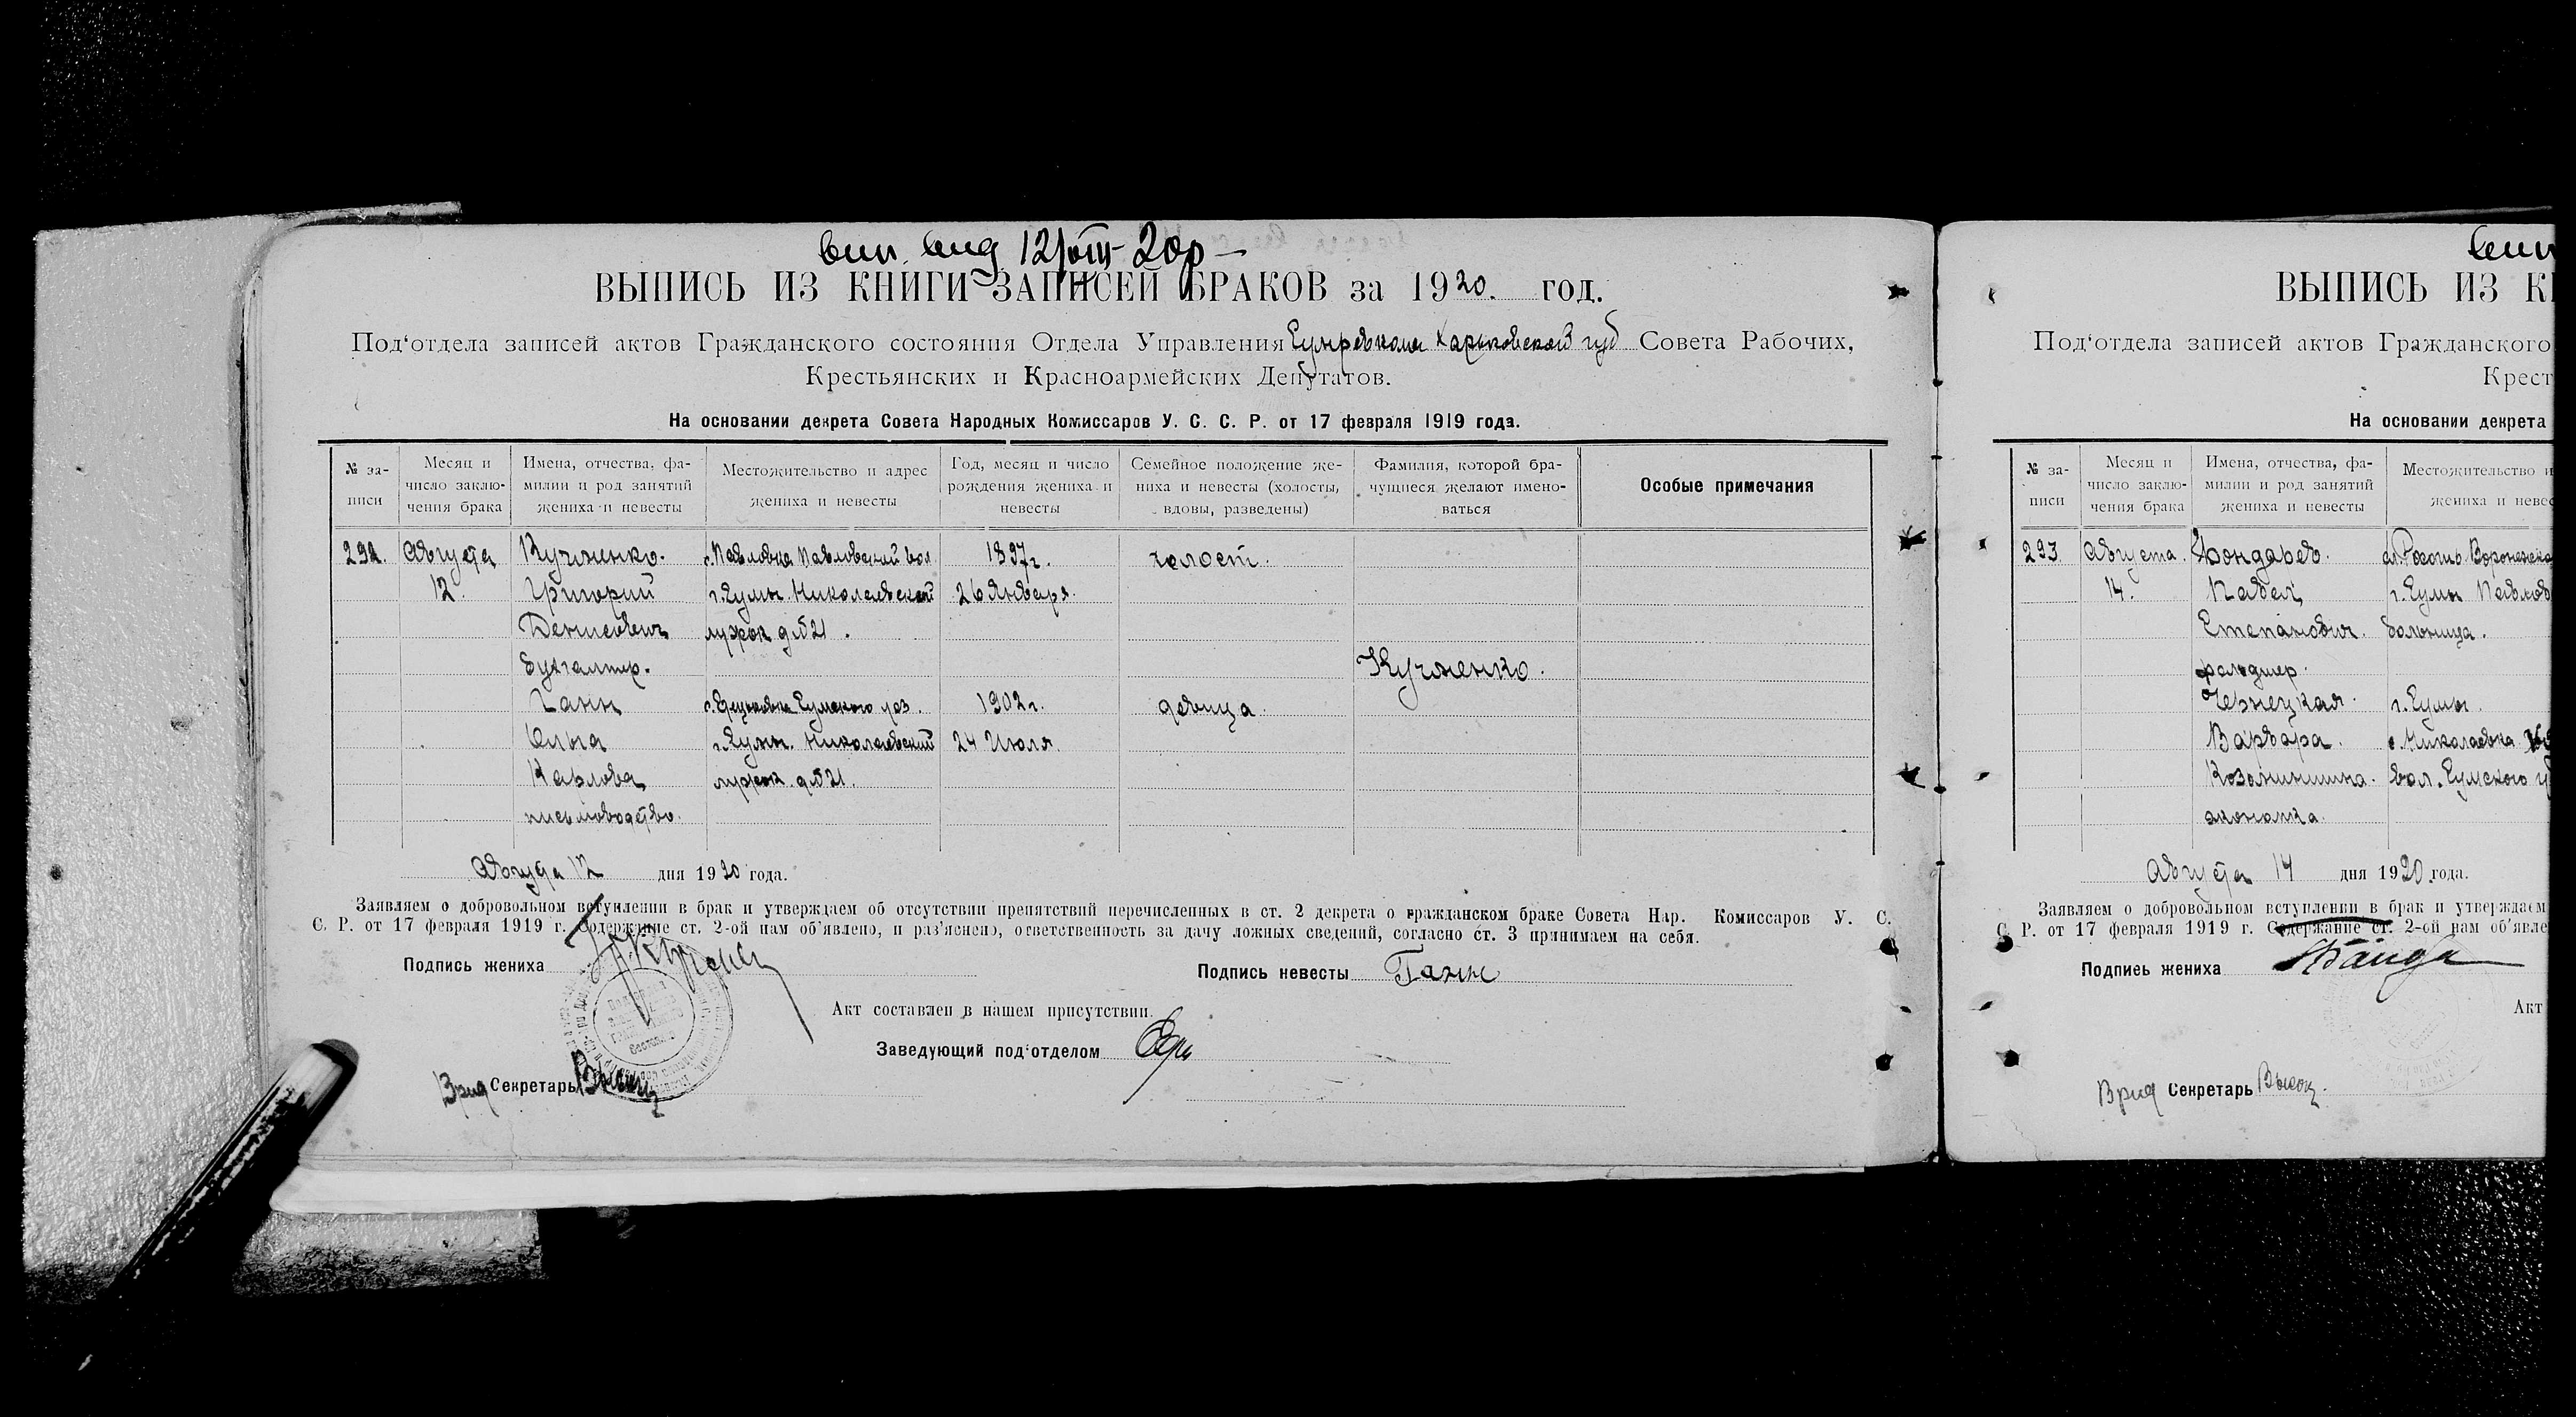 вип. вид 12/VIII-20р
ВЫПИСЬ ИЗ КНИГИ ЗАПИСЕЙ БРАКОВ за 1920. год.
Под'отдела записей актов Гражданского состояния Отдела Управления Сумревкома Харьковской губ Совета Рабочих,
Крестьянских и Красноармейских Депутатов.
На основании декрета Совета Народных Комиссаров У. С. С. Р. от 17 февраля 1919 года.
№ за-писи
Месяц и число заклю-чения брака
Имена, отчества, фа-милии и род занятий жениха и невесты
Местожительство и адрес жениха и невесты
Год, месяц и число рождения жениха и невесты
Семейное положение же-ниха и невесты (холосты, вдовы, разведены)
Фамилия, которой бра-чущиеся желают имено-ваться
Особые примечания
292. Августа Кучменко. с. Павловка Павловской вол 1897г. холост.
12. Григорий г. Сумы. Николаевский 26 Января.
Денисович лужок д №21.
бухгалтер. Кучменко.
Ганн Сумского уез. 1902г. девица.
Ольга г. Сумы. Николаевский 24 Июля.
Карлова лужок. д №21.
письмоводство.
Августа 12 дня 1920 года.
Заявляем о добровольном вступлении в брак и утверждаем об отсутствии препятствий перечисленных в ст. 2 декрета о гражданском браке Совета Нар. Комиссаров У. С.
С. Р. от 17 февраля 1919 г. Содержание ст. 2-ой нам об'явлено, и раз'яснено, ответственность за дачу ложных сведений, согласно ст. 3 принимаем на себя.
Подпись жениха
Подпись невесты Ганн
Акт составлен в нашем присутствии.
Заведующий под'отделом
Врид Секретарь
вип
ВЫПИСЬ ИЗ К
Под'отдела записей актов Гражданского
Крест
На основании декрета
№ за-писи
Месяц и число заклю-чения брака
Имена, отчества, фа-милии и род занятий жениха и невесты
Местожительство и жениха и невес
293. Августа. Бондарев. Воронежско
14. Павел г. Сумы Павлов
Степанович. больница.
фельдшер.
Чернецкая. г. Сумы.
Варвара. с. Николаевка
Козьминишна. вол. Сумского у
экономка.
Августа 14 дня 1920 года.
Заявляем о добровольном вступлении в брак и утверждаем
С. Р. от 17 февраля 1919 г. Содержание ст. 2-ой нам об'явле
Подпись жениха
Акт
Врид Секретарь Высоц.